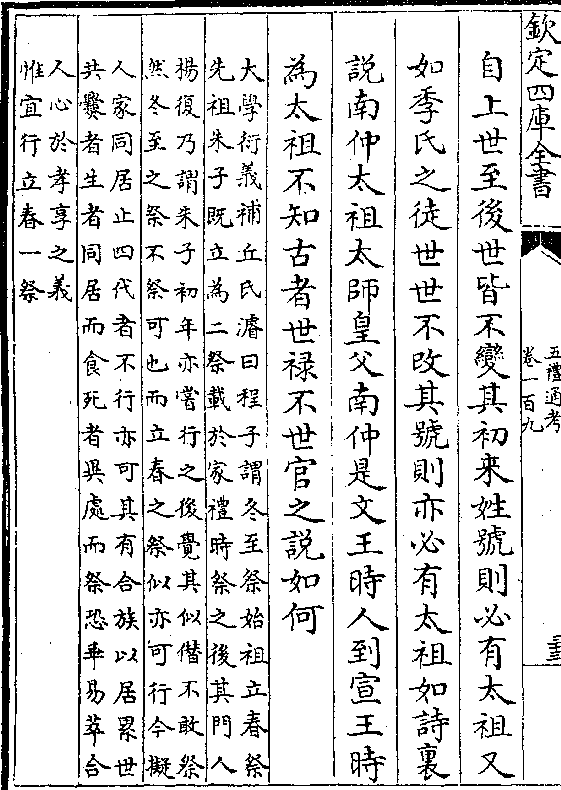 欽定四庫全書
五禮通考
卷一百九
自上世至後世皆不變其初来姓號則必有太祖又
如季氏之徒世世不改其號則亦必有太祖如詩裏
説南仲太祖太師皇父南仲是文王時人到宣王時
為太祖不知古者世禄不世官之説如何
大學衍義補丘氏濬曰程子謂冬至祭始祖立春祭
先祖朱子既立為二祭載於家禮時祭之後其門人
楊復乃謂朱子初年亦嘗行之後覺其似僭不敢祭
然冬至之祭不祭可也而立春之祭似亦可行今擬
人家同居止四代者不行亦可其有合族以居累世
共爨者生者同居而食死者異處而祭恐乖易萃合
人心於孝享之義
惟宜行立春一祭